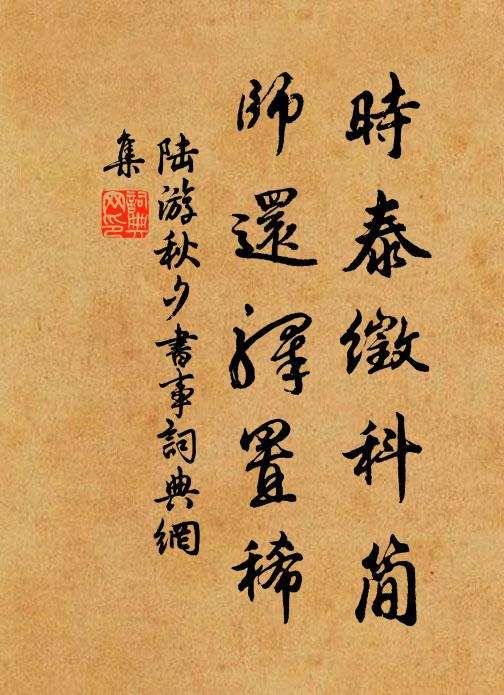 時泰徵科簡
師還驛置稀
陸游秋夕書事詞典網
集
詞典网印